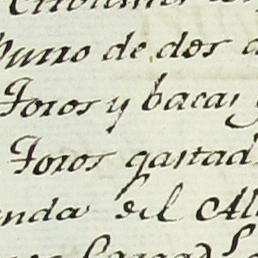 Burro de dos
Toros y bacas
Toros gastad
enda del Al